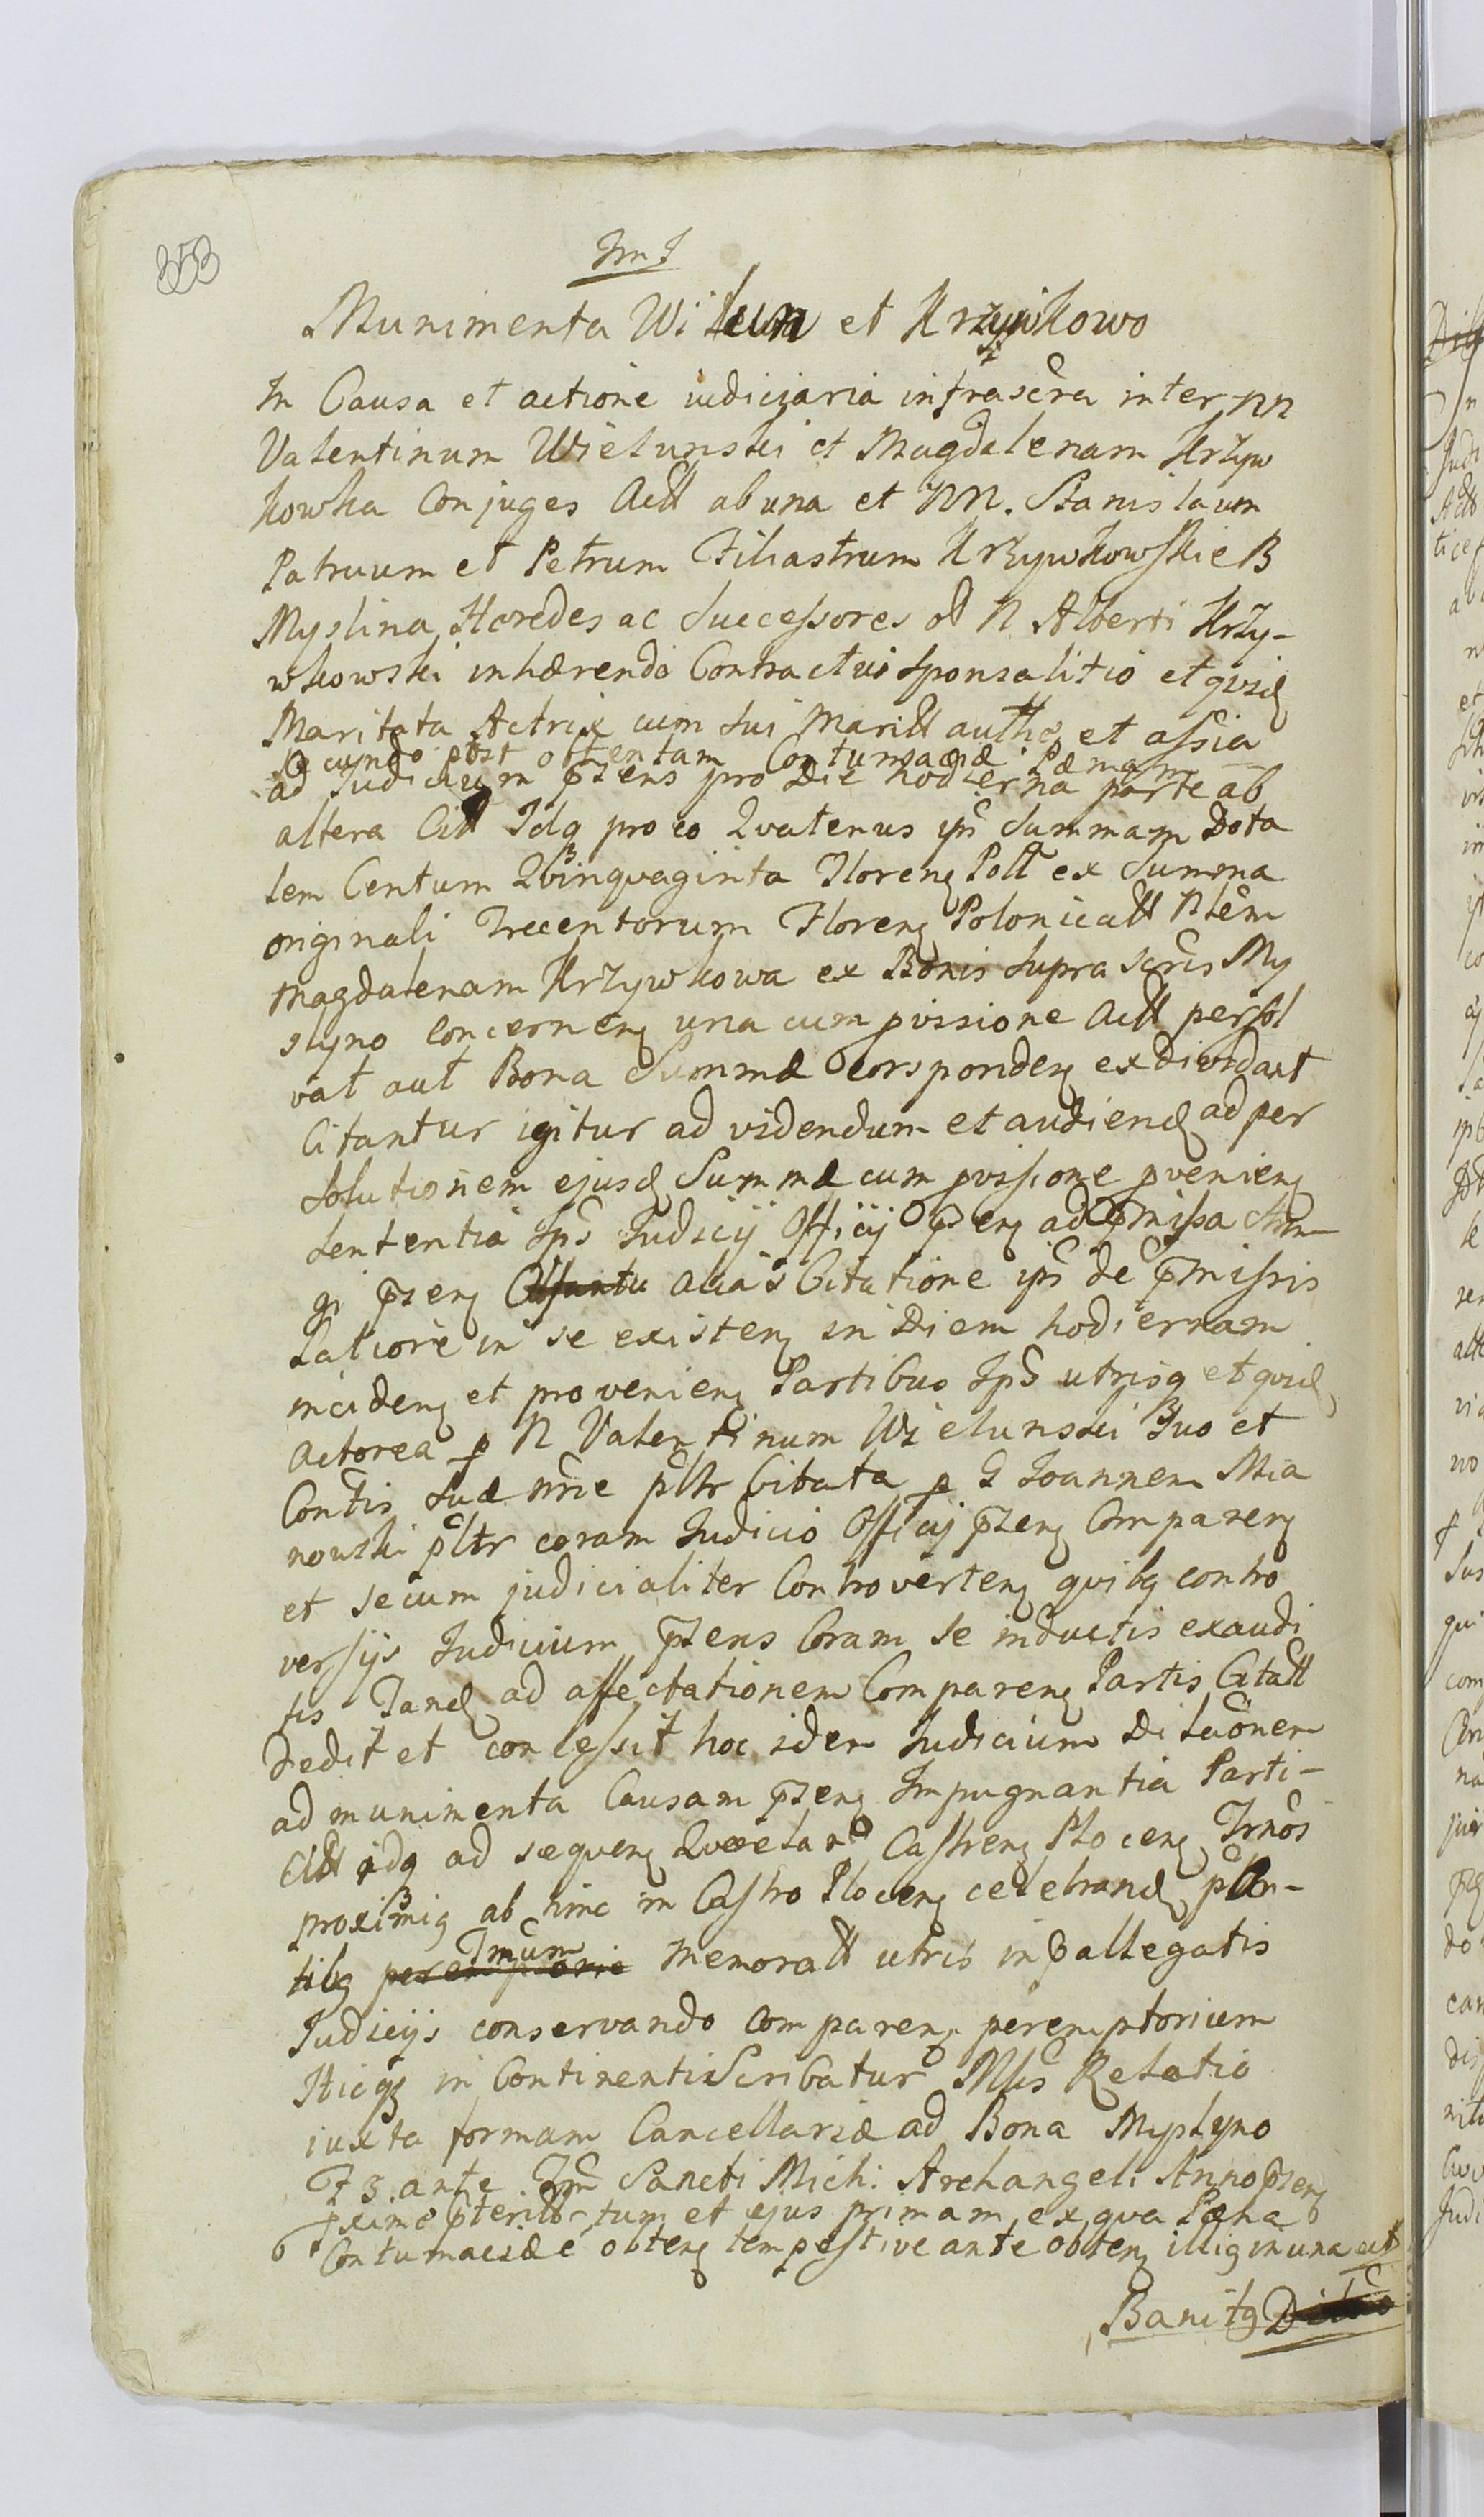 353
Munimenta Wi et Krzywkowo
In Causa et actione iudiciaria infrascra inter NN
Valentinum Wielunski et Magdalenam Krzyw
kowska Conjuges Actt ab una et NN. Stanislaum
Patruum et Petrum Filiastrum Krzywkowskie B
Myslina Hæredes ac Successores ol N Alberti Krzy-
wkowski inhærendo Contractui Sponsalitio et quid
Maritata Actrix cum sui Maritt autho et assia
Secundo post obtentam Contumaciæ Pænam
ad Judicium pzens pro Die hodierna parte ab
altera Citt Idq pro eo Quatenus ipi Summam Dota
lem Centum Quinquaginta Floren Poll ex Summa
originali Trecentorum Floren Polonicatt Nlem
Magdalenam Krzywkowa ex Bonis supra scris My
slyno concernen una cum pvisione Actt persol
vat aut Bona Summæ corsponden exdividant
Citantur igitur ad videndum et audiend ad per
solutionem ejusd Summæ cum pvisione pvenien
sententia Ips Judicij Officij pzen ad pmissa
gi pzen alias Citatione ips de pmissis
Latiore in se existen in Diem hodiernam
inciden et provenien Partibus Ips utrisq et quid
actorea p N Valentinum Wielunski Suo et
Contis suæ nrie pltr Citata p G Joannem Mia
nowski pltr coram Judicio Officij pzen Comparen
et secum judicialiter Controverten quibq contro
versijs Judicium pzens Coram se inductis exaudi
tis Tand ad affectationem Comparen Partis Citatt
Dedit et concessit hoc idem Judicium Dilaonem
ad munimenta Causam pzen Impugnantia Parti-
Citt idq ad sequen Querelar Castren Plocen Trnos
proximiq ab hinc in Castro Plocen celebrand
tibq peremptorie Tmum memoratt utris in pallegatis
Judicijs conservando comparen peremptorium
Hicqz in Continenti Scribatur Mlis Relatio
iuxta formam Cancellariæ ad Bona Myslyno
F 3 ante Fm Sancti Mich: Archangeli Anno pzen
pximo pteritt-tum et ejus primam ex qua Pæna
Contumaciæ obten tempestive ante obten illiq in una
Banitq